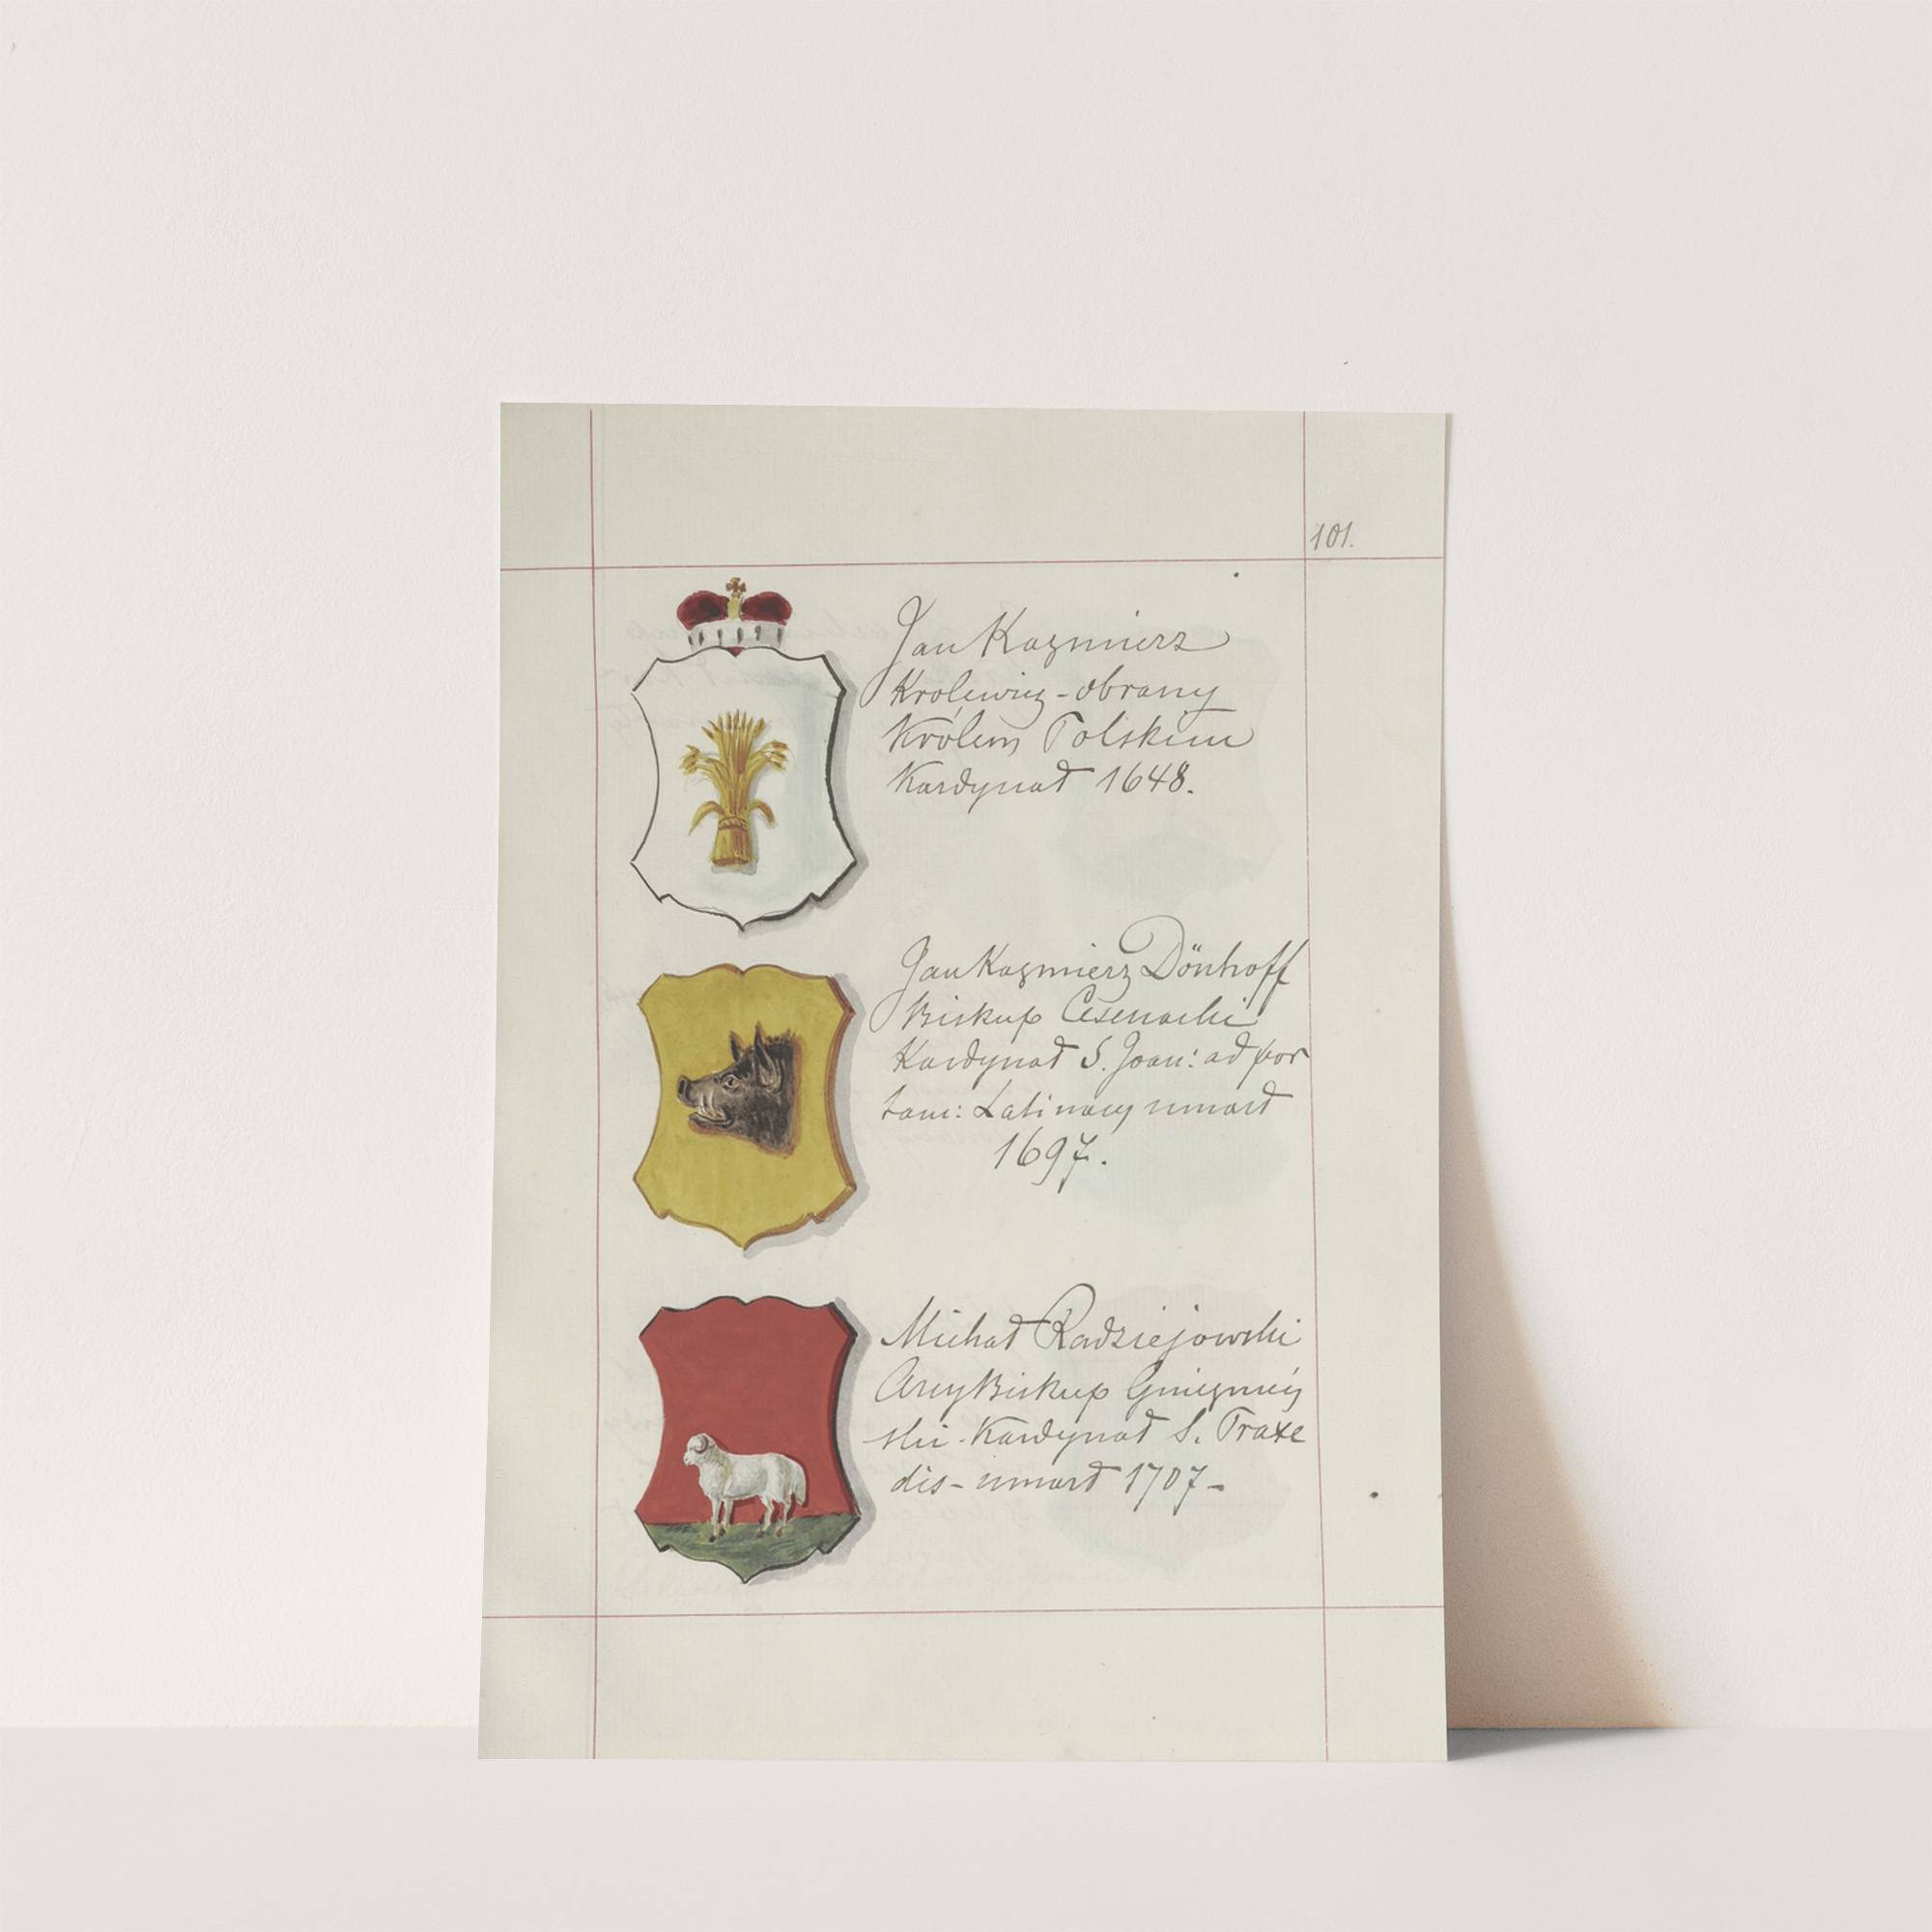 101.
Jan Kazmierz
Krolewicz - obrany
Królem Polskim
Kardynał 1648.
Jan Kazmierz Dönhoff
Biskup Cesenacki
Kardynał S. Joan: ad por
tam: Latinam umarł
1697.
Michał Radziejowski
ArcyBiskup Gnieznień
ski - Kardynał S. Praxe
dis - umarł 1707 -